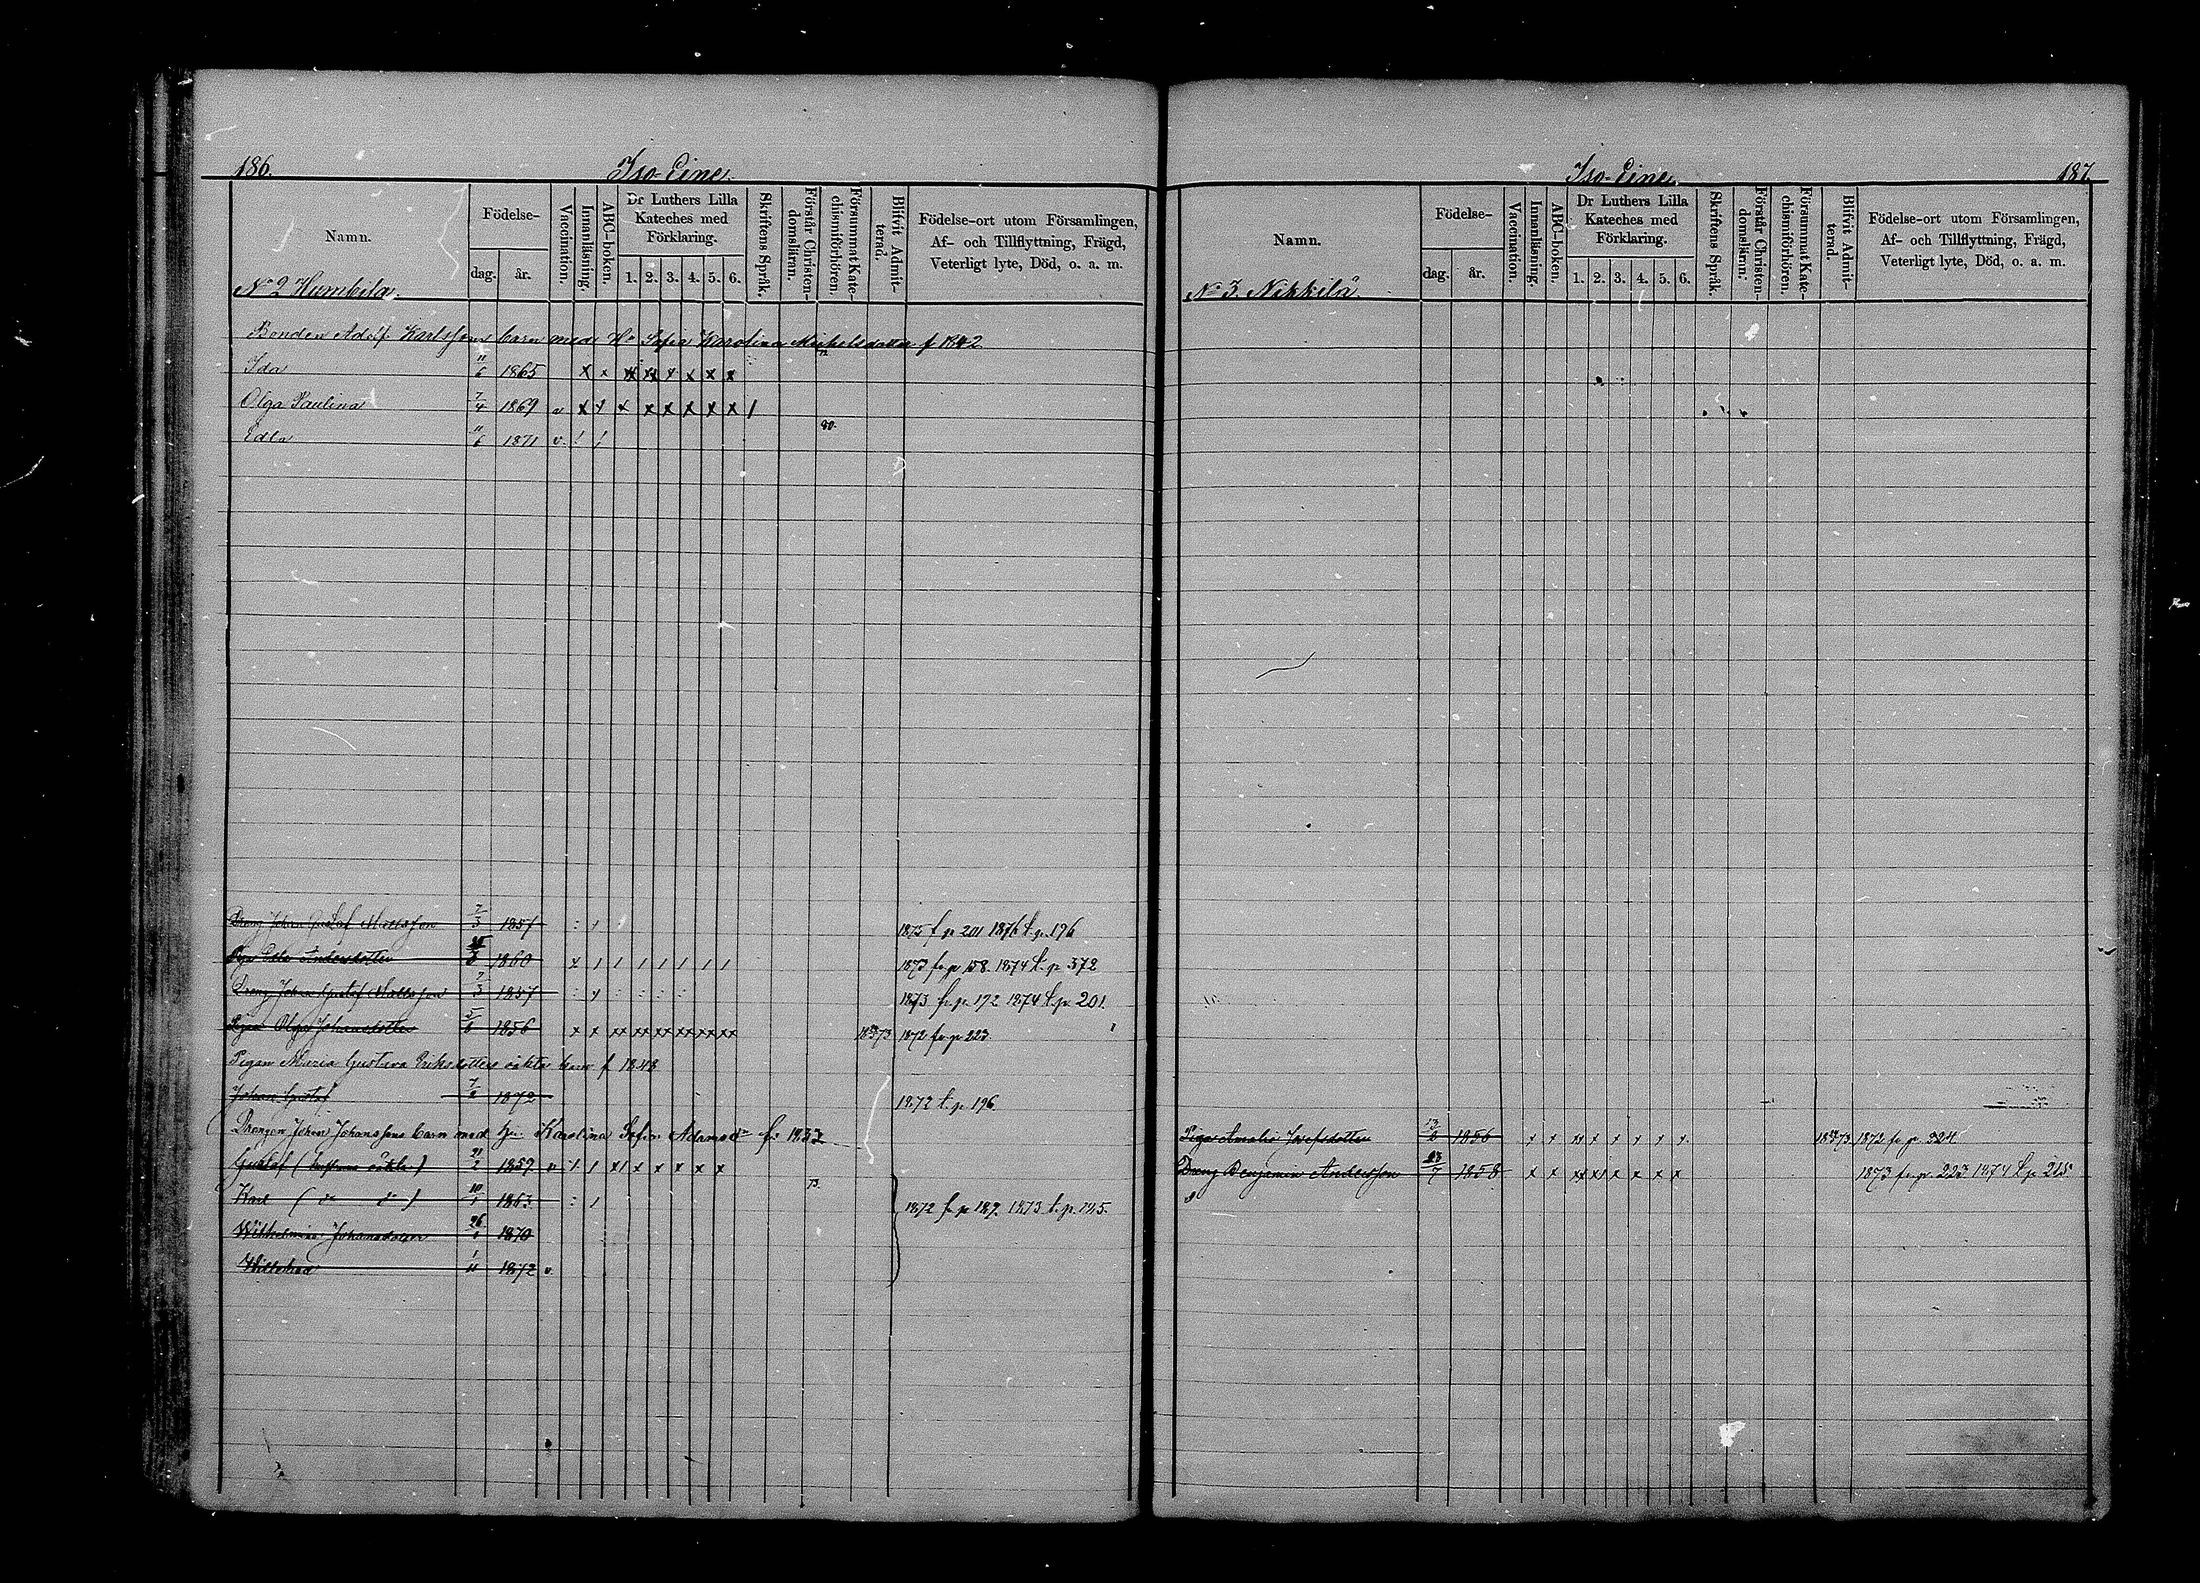 186.
Iso-Eine.
Namn.
Födelse-
dag. år.
Vaccination.
Innanläsning.
ABC-boken.
Dr Luthers Lilla Kateches med Förklaring.
1. 2. 3. 4. 5. 6.
Skriftens Språk.
Förstår Christendomsläran.
Försummat Katechismiförhören.
Blifvit Admitterad.
Födelse-ort utom Församlingen,
Af- och Tillflyttning, Frägd,
Veterligt lyte, Död, o. a. m.
No 2 Humbila.
Bonden Adolf Karlssons barn med Hu Sofia Karolina Michelsdotter f 1842
Ida 11/6 1865 x x x x x x x x
Olga Paulina 7/4 1869 v x x x x x x x x /
80.
Edla 11/6 1871 v. ! !
Dreng Johan Gustaf Mattsson 7/3 1857 : / 1875 f p 201 1876 t. p. 196
Piga Edla Andersdotter 1860 x / / / / / / / 1873 fr. p 158. 1874 t. p 372
Dreng Johan Gustaf Mattsson 7/3 1857 1873 fr. p. 172 1874 t. p. 201.
Pigan Olga Johansdotter 5/6 1856 x x xx xx xx xx xx xx 1873 1872 fr p 223.
Pigan Maria Gustava Eriksdotters oäkta barn f 1848
Johan Gustaf 1872 1872 t. p 196.
Drengen Johan Johanssons barn med Hu. Karolina Sofia Adamsdr f. 1833
Gustaf (hustruns oäkta) 21/2 1859
73.
Karl (do do) 10/1 1863 : / 1872 f. p 187. 1873 t. p. 195.
Wilhelmina Johansdotter 26/1 1870
Willehad 1/11 1872 v.
Iso-Eine.
187.
Namn.
Födelse-
dag. år.
Vaccination.
Innanläsning.
ABC-boken.
Dr Luthers Lilla Kateches med Förklaring.
1. 2. 3. 4. 5. 6.
Skriftens Språk.
Förstår Christendomsläran.
Försummat Katechismiförhören.
Blifvit Admitterad.
Födelse-ort utom Församlingen,
Af- och Tillflyttning, Frägd,
Veterligt lyte, Död, o. a. m.
No 3. Nikkilä.
Piga Amalia Josefsdotter 13/6 1856 x x xx x x x x x 1873 1872 fr. p. 324.
Dreng Benjamin Andersson 23/7 1858 x x xx xx x x x x 1873 fr. p. 223 1874 t. p. 215